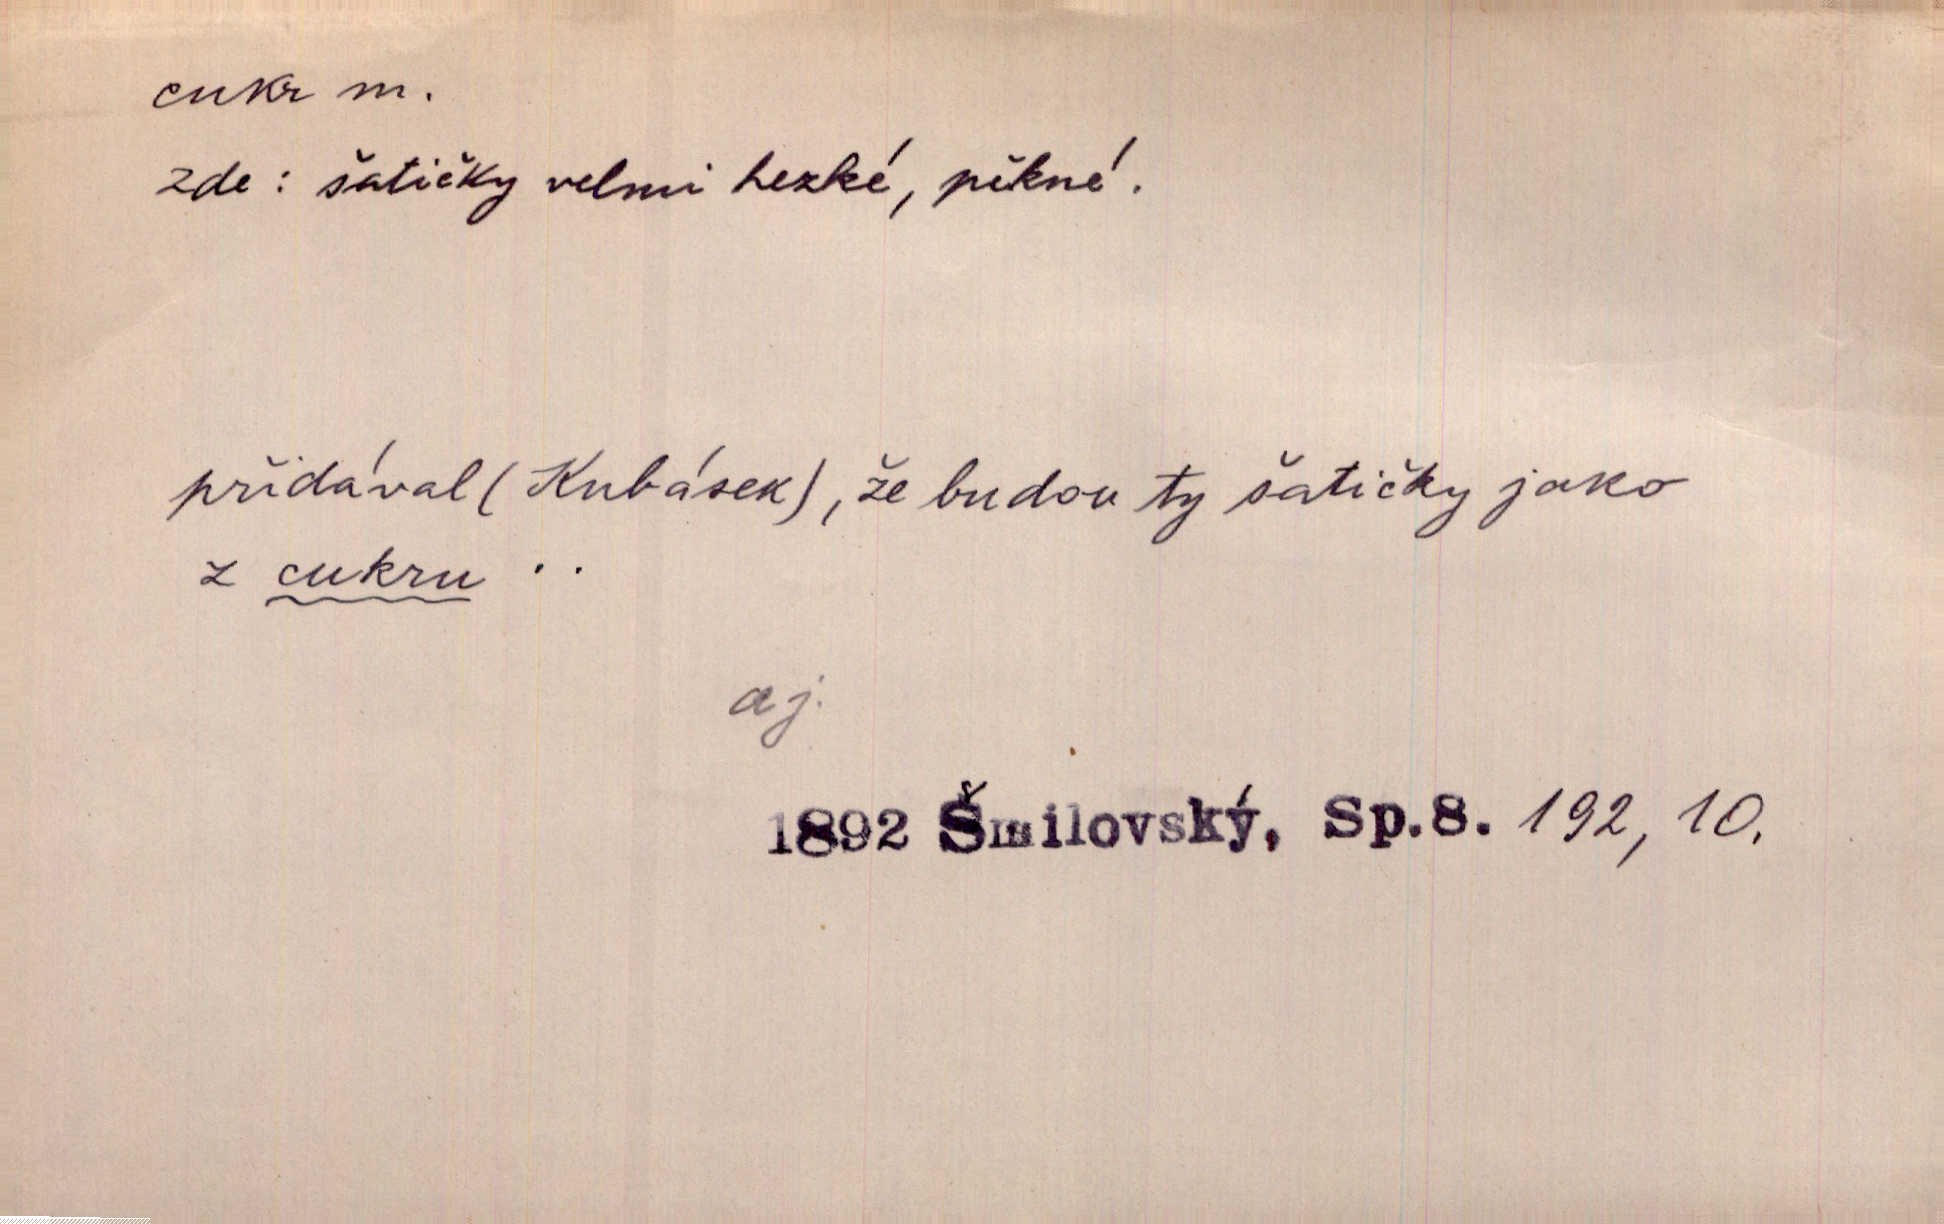 cukr m.
zde: šatičky velmi hezké, pěkné.
přidával (Kubásek), že budou ty šatičky jako
z cukru ..
aj.
1892 Šmilovský, Sp.8. 192, 10.